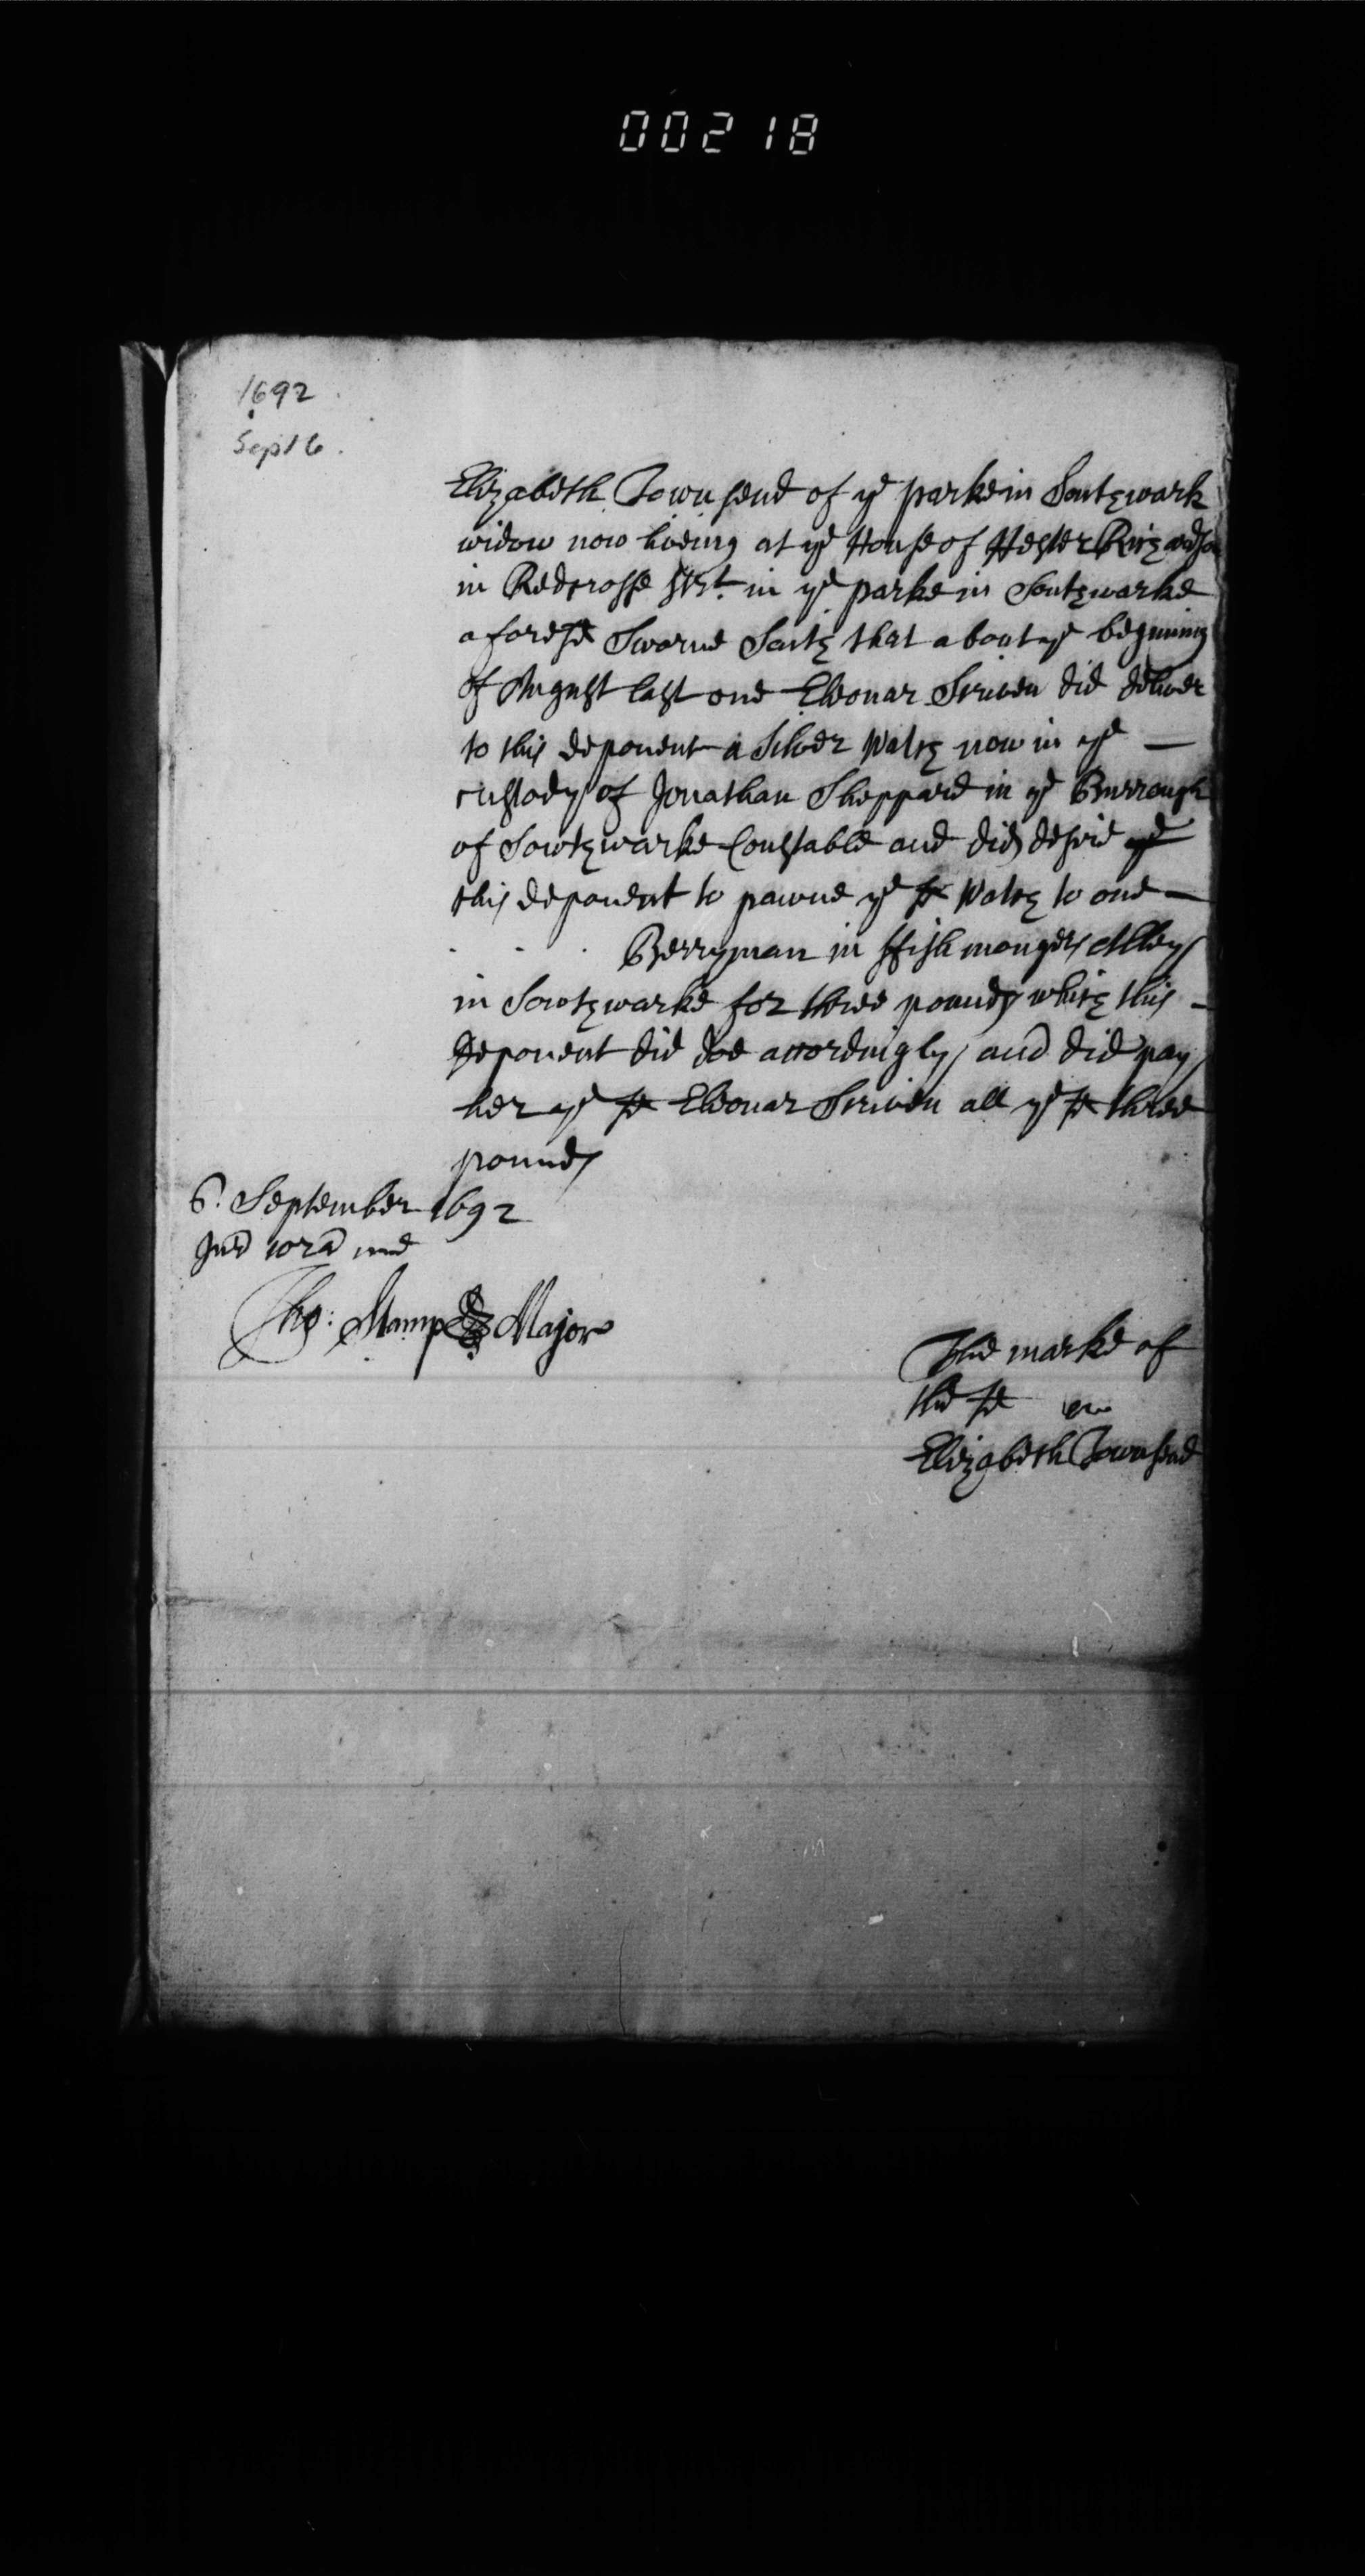 00218
1692
Sept 6.
Elizabeth Townsend of ye parke in Southwark
widow now liveing at ye House of Hester Richardson
in Redcrosse Strt. in ye parke in Southwarke
aforesd Sworne Saith that about ye begining
of August last one Eleonar Scriven did deliver
to this deponent a Silver Watch now in ye —
custody of Jonathan Sheppard in ye Burrough
of Southwarke Constable and did desire ye
this deponent to pawne ye sd Watch to one —
. . . Berryman in ffishmongers Alley
in Southwarke for three pounds which this —
deponent did doe accordingly and did pay
her ye sd Eleonar Scriven all ye sd three
pounds
6. September 1692
Jur cora me
Tho: Stampe Major
The marke of
the sd
Elizabeth Townsend